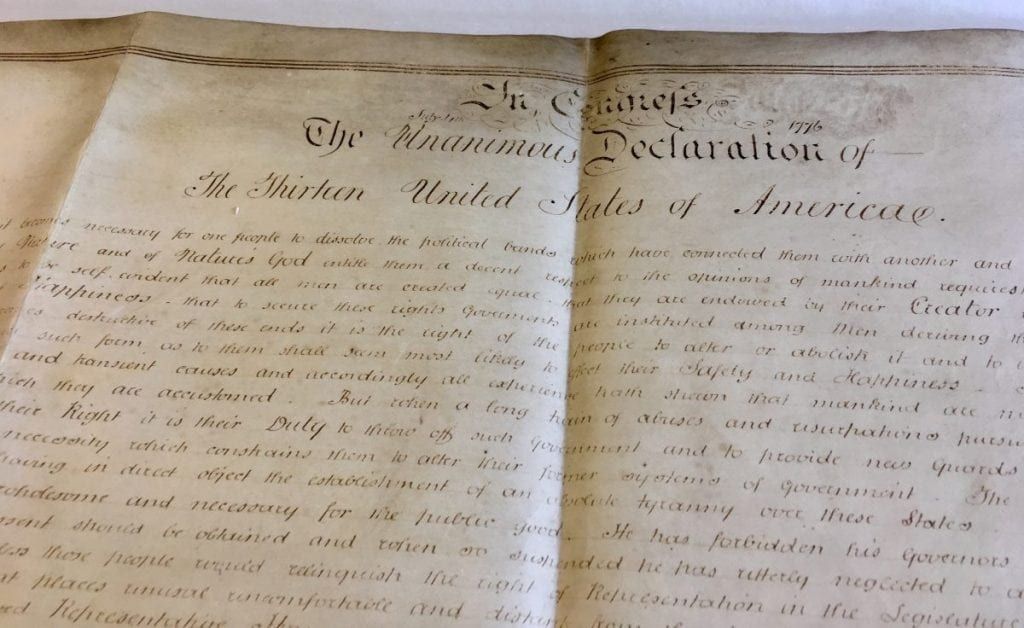 In Congress
1776
The Unanimous Declaration of
The Thirteen United States of America.
becomes necessary for one people to dissolve the political bands which have connected them with another and
Nature and of Natures God entitle them a decent respect to the opinions of mankind requires
to be self evident that all men are created equal - that they are endowed by their Creator
Happiness - that to secure these rights Goverments are instituted among Men deriving
destructive of these ends it is the right of the people to alter or abolish it and to
such form, as to them shall seem most likely to effect their Safety and Happiness -
and transient causes and accordingly all experience hath shewn that mankind are
which they are accustomed. But when a long train of abuses and usurpations
their Right it is their Duty to throw off such Government and to provide new Guards
necessity which constrains them to alter their former systems of Government. The
having in direct object the establishment of an absolute tyranny over these States.
wholesome and necessary for the public good. He has forbidden his Governors
should be obtained and when so suspended he has utterly neglected to
those people would relinquish the right of Representation in the Legislature
places unusual uncomfortable and distant from the
Representative